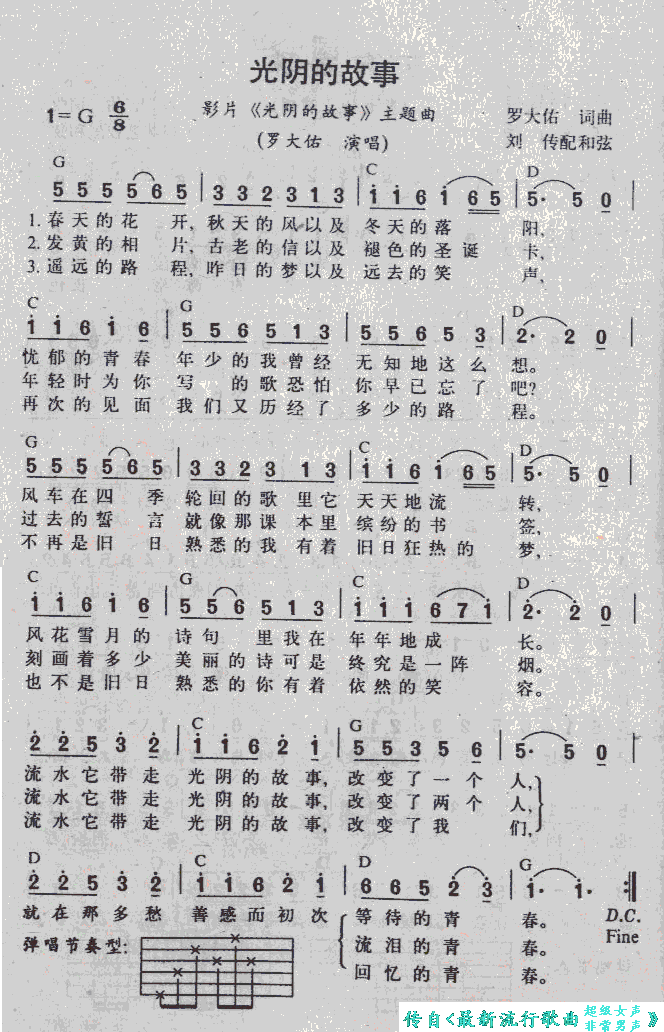 光阴的故事
1=G 6/8 影片《光阴的故事》主题曲 罗大佑 词曲
(罗大佑 演唱) 刘 传配和弦
G C D
5 5 5 5 6 5 | 3 3 2 3 1 3 | i i 6 i 6 5 | 5· 5 0
1.春天的花 开,秋天的风以及 冬天的落 阳,
2.发黄的相 片,古老的信以及 褪色的圣诞 卡,
3.遥远的路 程,昨日的梦以及 远去的笑 声,
C G D
i i 6 i 6 | 5 5 6 5 1 3 | 5 5 6 5 3 | 2· 2 0
忧郁的青春 年少的我曾经 无知地这么 想。
年轻时为你 写 的歌恐怕 你早已忘了 吧?
再次的见面 我们又历经了 多少的路 程。
G C D
5 5 5 5 6 5 | 3 3 2 3 1 3 | i i 6 i 6 5 | 5· 5 0
风车在四 季 轮回的歌 里它 天天地流 转,
过去的誓 言 就像那课 本里 缤纷的书 签,
不再是旧 日 熟悉的我 有着 旧日狂热的 梦,
C G C D
i i 6 i 6 | 5 5 6 5 1 3 | i i i 6 7 i | 2· 2 0
风花雪月的 诗句 里我在 年年地成 长。
刻画着多少 美丽的诗可是 终究是一阵 烟。
也不是旧日 熟悉的你有着 依然的笑 容。
C G
2 2 5 3 2 | i i 6 2 i | 5 5 3 5 6 | 5· 5 0
流水它带走 光阴的故事,改变了一个 人,
流水它带走 光阴的故事,改变了两个 人,
流水它带走 光阴的故事,改变了我 们,
D C D G
2 2 5 3 2 | i i 6 2 i | 6 6 5 2 3 | i· i· :‖
就在那多愁 善感而初次 等待的青 春。 D.C.
弹唱节奏型: 流泪的青 春。 Fine
回忆的青 春。
传自《最新流行歌曲 超级女声 非常男声 》